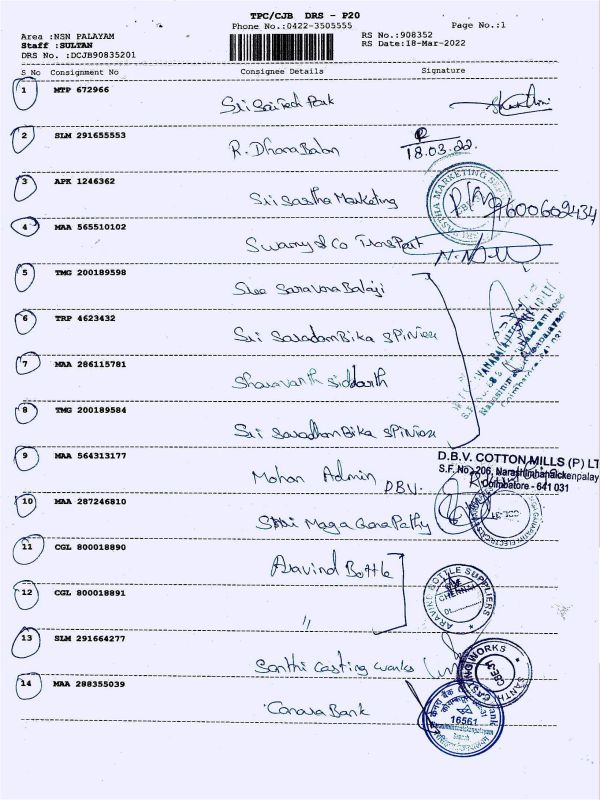 TPC/CJB DRS - P20
Phone No.:0422-3505555
Page No.:1
Area :NSN PALAYAM
Staff :SULTAN
DRS No. :DCJB90835201
RS No.:908352
RS Date:18-Mar-2022
S No Consignment No Consignee Details Signature
1 MTP 672966
Sri SaiTech Park
2 SLM 291655553
R. DharaBabu
18.03.22.
3 APK 1246362
Sri Sastha Marketing
9600609434
4 MAA 565510102
Swamy & Co TransPart
5 TMG 200189598
Sree SaravanaBalaji
6 TRP 4623432
Sri SaradamBika SPiNiese
7 MAA 286115781
Sharavanth Siddarth
8 TMG 200189584
Sri SaradhamBika SPiNiese
9 MAA 564313177
Mohan Admin DBV.
D.B.V. COTTON MILLS (P) LT
S.F. No. 206, Narasimhanaickenpalay
Coimbatore - 641 031
10 MAA 287246810
Shri Maga GanaPathy
11 CGL 800018890
Aravind Bottle
ARAVIND BOTTLE SUPPLIERS
CHENNAI
12 CGL 800018891
"
13 SLM 291664277
Santhi Casting works
SANTHI CASTING WORKS
CBE-31
14 MAA 288355039
Canara Bank
16561